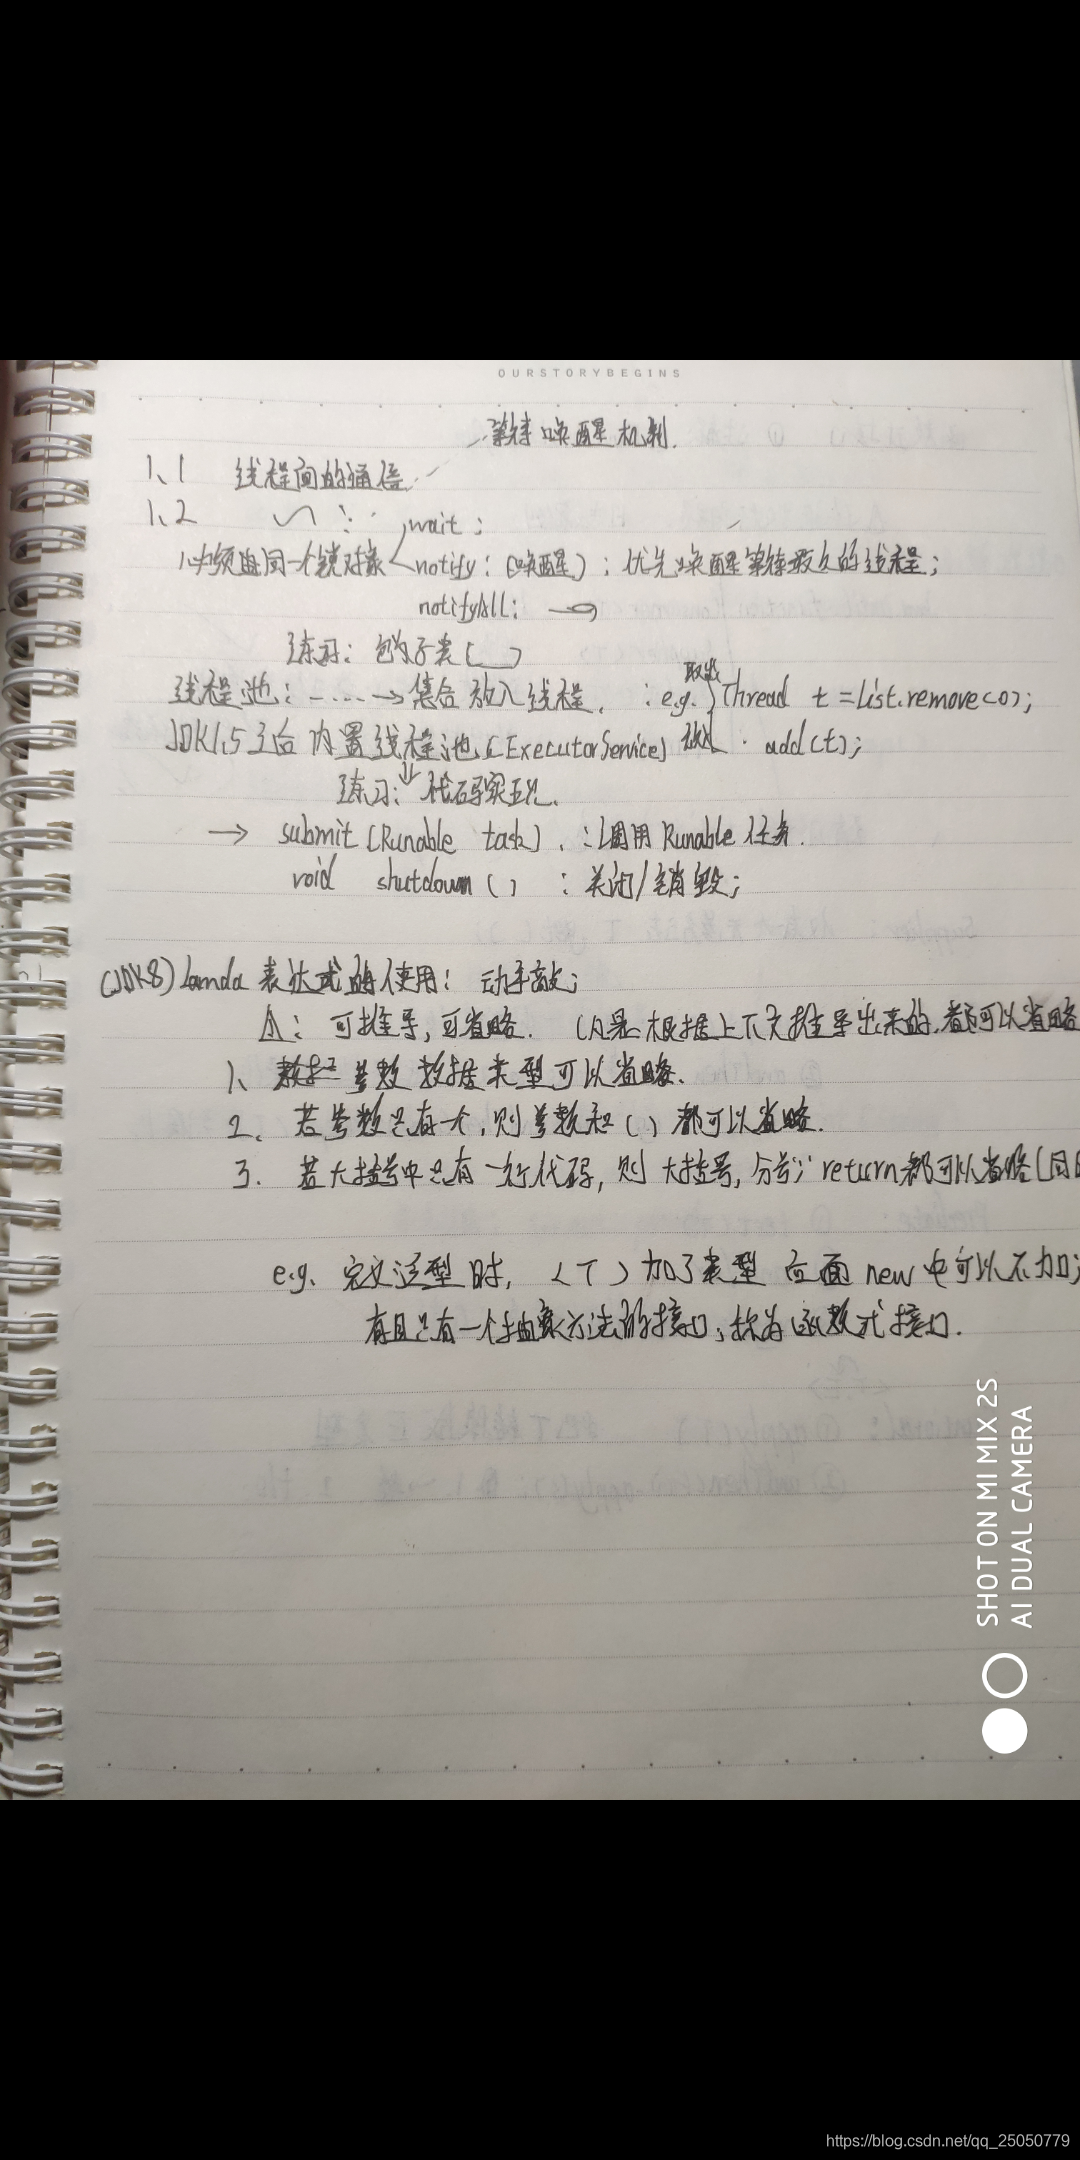 OURSTORYBEGINS
等待唤醒机制.
1、1 线程间的通信
1、2
wait：
必须由同一个锁对象 notify：(唤醒)；优先唤醒等待最久的线程；
notifyAll：
练习：包子类( )
取出
线程池：……→集合 放入线程. ：e.g. Thread t = List.remove(0)；
JDK1.5之后 内置线程池(ExecutorService) add(t)；
练习：代码实现.
→ submit(Runable task). ：调用 Runable 任务.
void shutdown() ：关闭/销毁；
(JDK8) lamda 表达式的使用：动手敲；
可推导,可省略. (凡是根据上下文推导出来的,都可以省略
1、参数数据类型可以省略.
2、若参数只有一个,则参数和()都可以省略.
3. 若大括号中只有一行代码, 则 大括号, 分号; return都可以省略(同时
e.g. 定义泛型时, <T>加了类型 后面 new 中可以不加；
有且只有一个抽象方法的接口,称为函数式接口.
SHOT ON MI MIX 2S
AI DUAL CAMERA
https://blog.csdn.net/qq_25050779